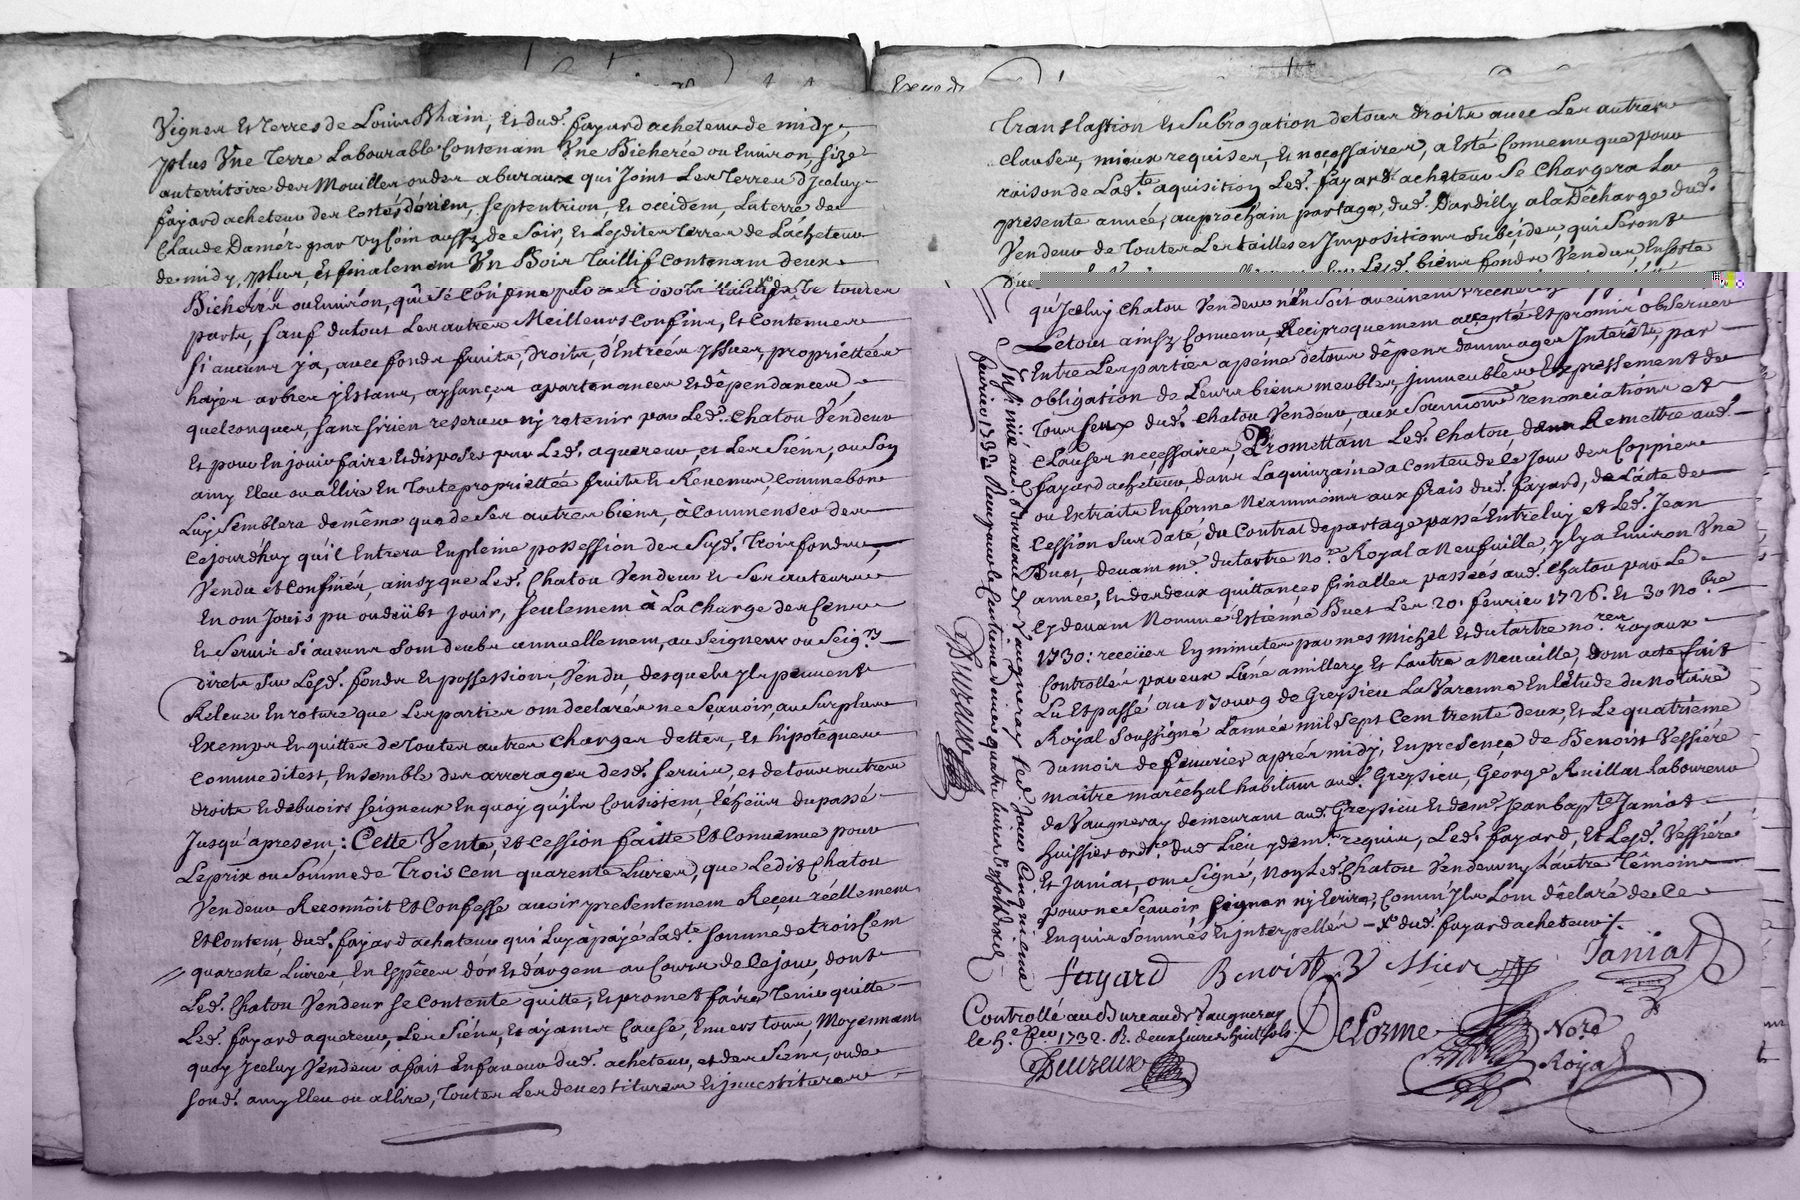 Vignes Et Terres de Louis Bhain, Et dud. fayard acheteur de midy,
plus Vne Terre Labourable Contenant Vne Bicherée ou Environ, size
au territoire des Mouilles ou des aburaux qui Joint Les Terres d'Jceluy
fayard acheteur des Costés d'orient, septentrion, Et occident, La terre de
Claude Damér par vn Coin aussy de Soir, Et Lesdites Terres de L'acheteur
de midy, plus, Et finalement Vn Bois Taillif Contenant deux
Bicherées ou Environ, qui Se Confine de toutes
parts, sauf du tout Les autres Meilleurs Confins, Et Contenues
si aucuns y a, avec fonds fruits, droits, d'Entrées yssues, propriettées
hayes arbres y Estans, aysances apartenances Et dépendances
quelconques, sans s'y rien reserver ny retenir par Led. Chatou Vendeur
Et pour En jouir faire Et disposer par Led. aquereur, et Les Siens, ou Son
amy Eleu ou allire En Toute propriettée fruits Et Revenus, comme bon
Luy Semblera de même que de Ses autres biens, à Commencer de
Cejourd'huy qu'il Entrera En pleine possession des Susd. Trois fonds
Vendu et Confinés, ainsy que Led. Chatou Vendeur Et Ses auteurs
En ont Jouis pu ou dûbt Jouir, seulement à La Charge des Cens
Et Servis Si aucuns Sont deubs annuellement, au Seigneur ou Seigrs
directs Sur Lesd. fonds Et possessions, Vendu, desquels yls peuvent
Relever En roture que Les parties ont declarés ne Sçavoir, au Surplus
Exemps Et quittes de Toutes autres Charges dettes, Et hipotêques
Comme ditest, Ensemble des arrerages desd. servis, et de tous autres
droits Et debuoirs seigneux En quoy qu'jls Consistent, du passé
Jusqu'apresent; Cette Vente, Et Cession faitte Et Convenue pour
Le prix ou Somme de Trois Cent quarente Livres, que Ledit Chatou
Vendeur Reconnôit Et Confesse avoir presentement Reçeu réellement
Et Content, dud. fayard acheteur qui Luy à payé Ladte somme de trois Cent
quarente Livres, En Espêces d'or Et d'argent au Cours de Ce jour, dont
Led. Chatou Vendeur se Contente quitte, Et promet faire Tenir quitte
Led. fayard aquereur, Les Siens, Et ayants Cause, Envers tous, Moyennant
quoy Jceluy Vendeur a fait En faveur dud. acheteur, et des Siens, ou de
sond. amy Eleu ou allire, Toutes Les devestitures Et jnvestitures
Translastion Et Subrogation de tous droits avec Les autres
clauses, mieux requises, Et necessaires, a Esté Convenu que pour
raison de Ladte aquisition Led. fayard acheteur Se Chargera La
presente année, au prochain partage, dud. Dardilly a La Décharge dud.
Vendeur de Toutes Les tailles et Jmpositions Subcides, qui Seront
Led. biens fonds Vendus En Sorte
qu'Jceluy Chatou Vendeur n'en Soit aucunement
Le tout ainsy Convenu, Reciproquement accepté Et promis observer
Entre Les parties a peine de tous dépens dommages Interêts, par
obligation de Leurs biens meubles jmmeubles Expressement de
Tous seux dud. Chatou Vendeur, aux Soumions renonciations et
Clauses necessaires, Promettant Led. Chatou, de Remettre aud.
fayard acheteur, dans La quinzaine a Conter de Ce Jour des Coppies
ou Extraits En forme Neanmoins aux frais dud. fayard, de L'acte de
Cession Sur daté, du Contrat de partage passé Entreluy et Led. Jean
Buet, devant me. dutartre nore. Royal a Neufuille, yl y a Environ Vne
année, Et des deux quittances finalles passées aud. Chatou par Le
Cydevant Nommé Estienne Buet Les 20. fevrier 1726. Et 30 Nobre
1730: receües En minutes par mes Michel Et dutartre nores royaux
Controllées par eux L'une a millery Et L'autre a Neuuille, dont acte fait
Lu Et passé au Bourg de Greysieu La Varenne En L'étude du Notaire
Royal Soussigné L'année mil Sept Cent trente deux, Et Le quatrième
du mois de fevrier aprés midy, En presence de Benoist Vessiére
maitre maréchal habitant aud. Greysieu, George Ruillat Laboureur
de Vaugneray demeurant aud. Greysieu Et de me. jean bapte Janiat
huissier ordre. dud Lieu y demt. requis, Led. fayard, Et Lesd. Vessiére
Et Janiat, ont Signé, Non Led. Chatou Vendeur ny L'autre Têmoin
pour ne Sçavoir signer ny Ecrire, Comm'jls L'ont déclaré de Ce
Enquis Sommés Et jnterpellés - dud. fayard acheteur.
fayard Benoist Vessier Janiat
Delorme Nore
Royal
Controllé au Bureau de Vaugneray
le 5e. feu 1732. R. deux livres huit sols.
Duzeux
Jnsinué aud. Bureau de Vaugneray led. jour Cinquieme
feurier 1732 Receu pour le Centieme denier quatre liures
Duzeux